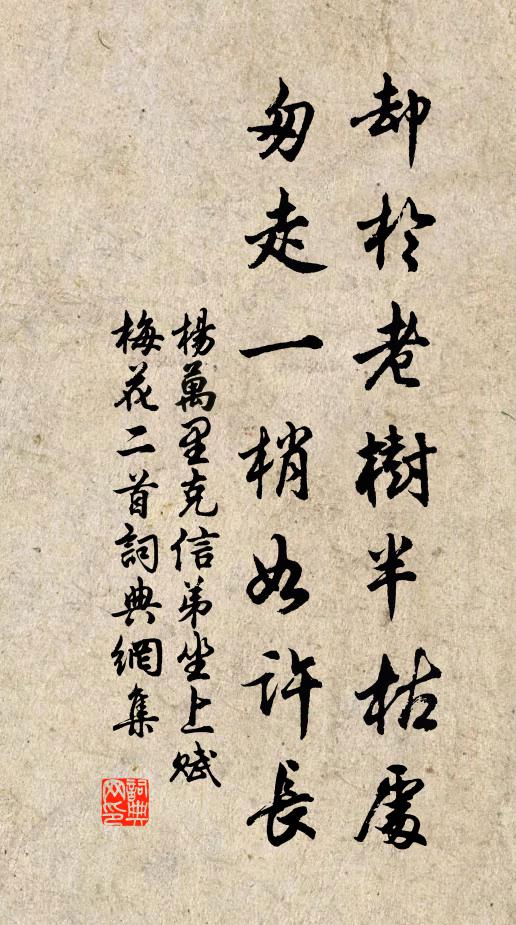 却於老樹半枯處
匆走一梢如許長
楊萬里克信弟坐上賦
梅花二首詞典網集
詞典
网印